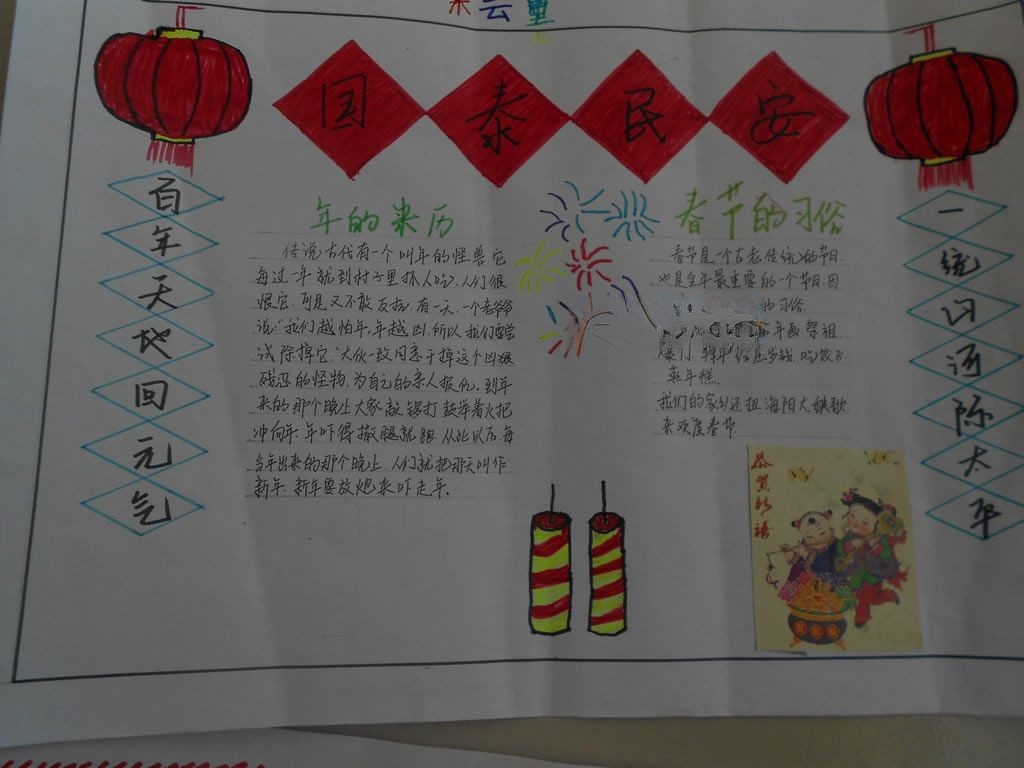 云
国泰民安
百年天地回元气
年的来历
传说古代有一个叫年的怪兽它
每过一年就到村子里抓人吃,人们很
恨它,可是又不敢反抗,有一天,一个老爷爷
说:“我们越怕年,年越凶,所以我们要尝
试除掉它,”大伙一致同意干掉这个凶狠
残忍的怪物,为自己的亲人报仇,到年
来的那个晚上大家敲锣打鼓举着火把
冲向年,年吓得撒腿就跑从此以后,每
当年出来的那个晚上,人们就把那天叫作
新年,新年要放炮来吓走年。
春节的习俗
春节是一个古老传统的节日,
也是全年最重要的一个节日,因
的习俗
年画祭祖
压岁钱,吃饺子
蒸年糕,
我们的家乡还扭海阳大秧歌
来欢度春节
恭贺新禧
一统山河际太平